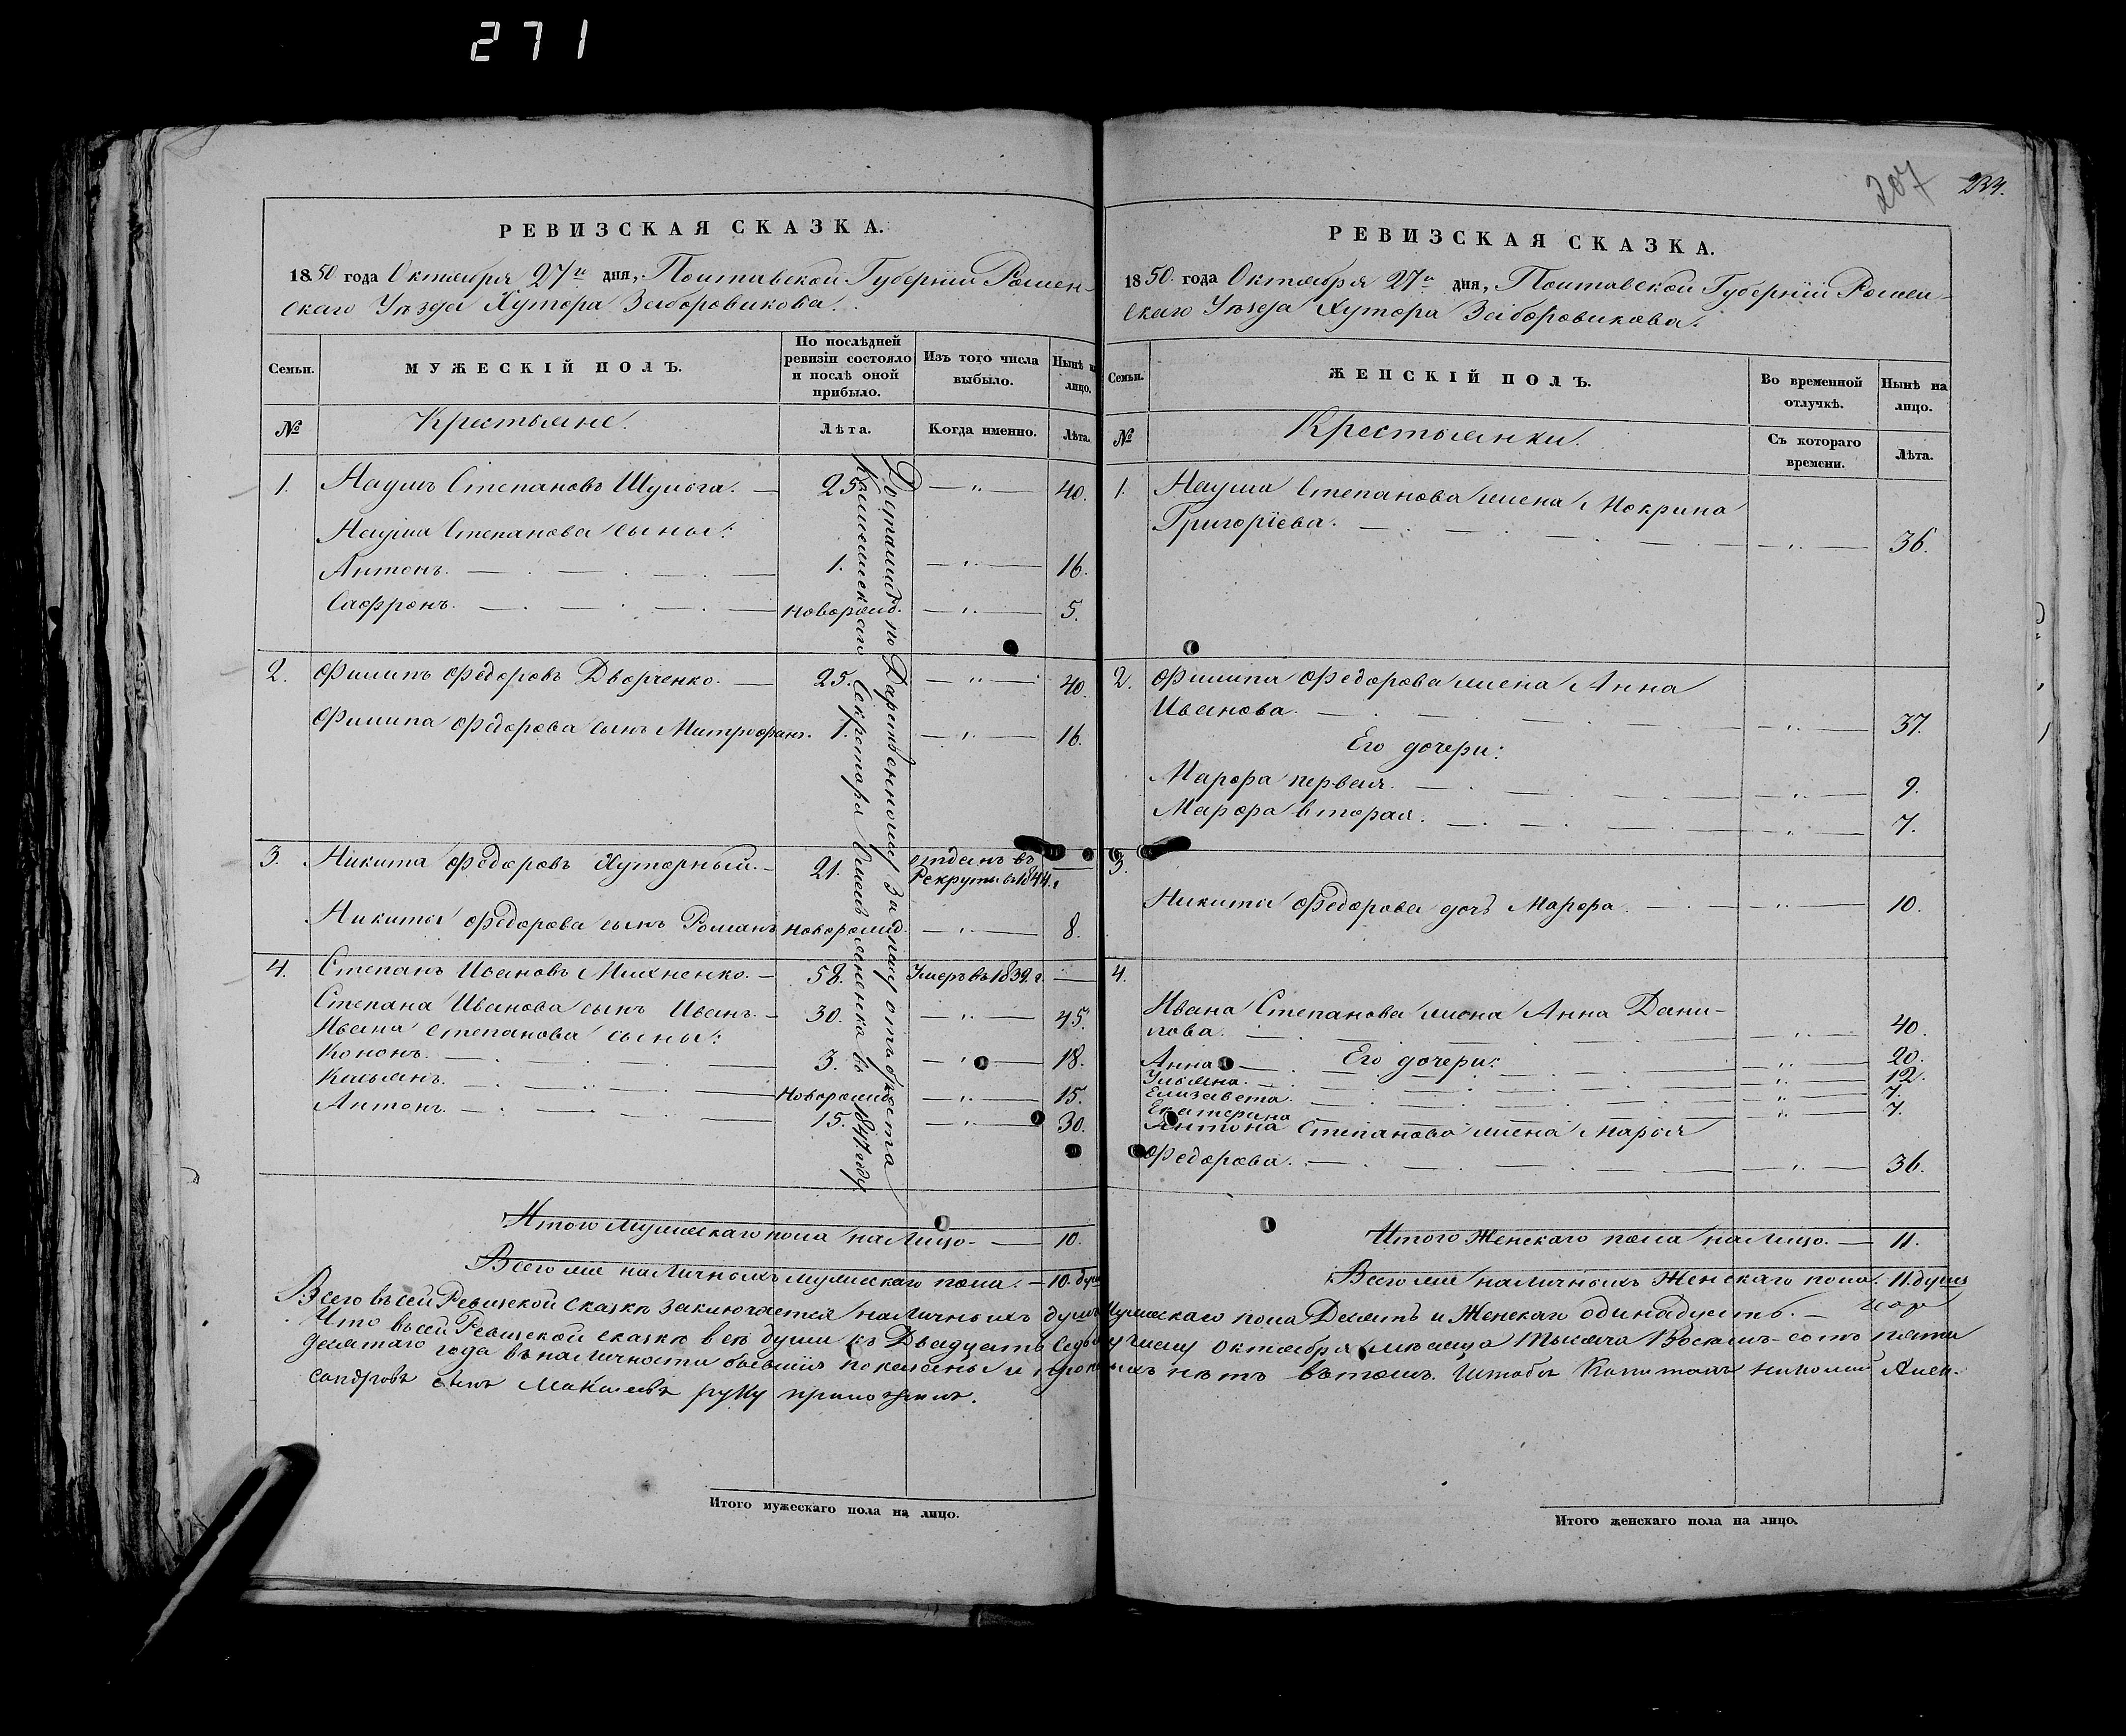 271
207
234.
РЕВИЗСКАЯ СКАЗКА.
1850 года Октября 27го дня, Полтавской Губерніи Ромен-
скаго Уѣзда Хутора Заборовикова.
Семьи.
МУЖЕСКІЙ ПОЛЪ.
По послѣдней ревизіи состояло и послѣ оной прибыло.
Изъ того числа выбыло.
Нынѣ на лицо.
№
Крестьяне.
Лѣта.
Когда именно.
Лѣта.
1. Наумъ Степановъ Шулога. — 25 — „ — 40.
Наума Степанова сыны:
Антонъ. — 1. — „ — 16.
Сафронъ. — новорожд. — „ — 5.
2. Филипъ Федоровъ Дворченко. — 25. — „ — 40.
Филипа Федорова сынъ Митрофанъ. 1. — „ — 16.
3. Никита Федоровъ Хуторный. — 21. отданъ въ
Рекруты въ 1844. г. —
Никиты Федорова сынъ Романъ новорожд. — „ — 8.
4. Степанъ Ивановъ Михненко. — 58. Умеръ въ 1839. г. —
Степана Иванова сынъ Иванъ. — 30. — „ — 45.
Ивана Степанова сыны:
Кононъ. — 3. — „ — 18.
Касьянъ. — Новорожд. — „ — 15.
Антонъ. — 15. — „ — 30.
Достались по Дарственному Запису отъ брата
Секретаря въ 1847 году
Итого мужескаго пола на лицо. — 10.
Всего же наличныхъ мужескаго пола. — 10. душ
РЕВИЗСКАЯ СКАЗКА.
1850. года Октября 27го дня, Полтавской Губерніи Ромен-
скаго Уѣзда Хутора Заборовикова.
Семьи.
ЖЕНСКІЙ ПОЛЪ.
Во временной отлучкѣ.
Нынѣ на лицо.
№
Крестьянки.
Съ котораго времени.
Лѣта.
1. Наума Степанова жена Мокрина
Григоріева. — „ — 36.
2. Филипа Федорова жена Анна
Иванова. — „ — 37.
Его дочери:
Марфа первая. — „ — 9.
Марфа вторая. — „ — 7.
3.
Никиты Федорова дочь Марфа. — „ — 10.
4.
Ивана Степанова жена Анна Дани-
лова. — „ — 40.
Его дочери:
Анна — „ — 20.
Ульяна. — „ — 12.
Елизавета. — „ — 7.
Екатерина — „ — 7.
Антона Степанова жена Марья
Федорова. — „ — 36.
Итого Женскаго пола на лицо. — 11.
Всего же наличныхъ Женскаго пола. 11. душъ
Всего въ сей Ревизской сказкѣ заключается наличныхъ душъ Мужескаго пола Десять и Женскаго одинадцать. —
Что въ сей Ревизской сказкѣ всѣ души къ Двадцать Седьмому числу Октября мѣсяца Тысяча Восемь-сотъ пяти
десятаго года въ наличности бывшія показаны и прописныхъ нѣтъ въ томъ. Штабсъ Капитанъ Николай Алек-
сандровъ сынъ руку приложилъ.
Итого мужескаго пола на лицо.
Итого женскаго пола на лицо.